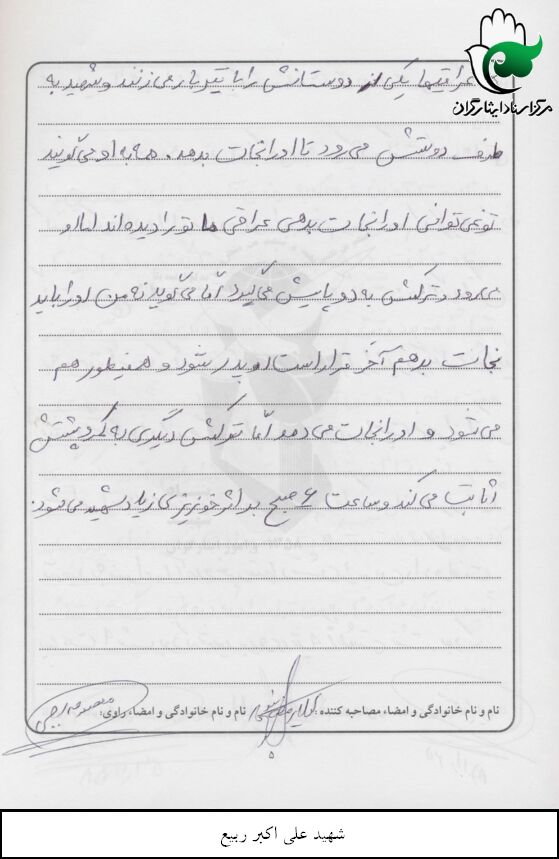 مرکز اسناد ایثارگران
عراقیها یکی از دوستانش را با تیر بار می زنند و شهید به
طرف دوستش می رود تا او را نجات بدهد. همه به او می گویند
تو نمی توانی او را نجات بدهی عراقی ها تو را دیده اند اما او
می رود و ترکش به دو پایش می گیرد اما می گوید نه من او را باید
نجات بدهم آخر قرار است او پدر شود و همینطور هم
می شود و او را نجات می دهد اما ترکش دیگری به کمر و پشتش
اثابت می کند و ساعت ۶ صبح بر اثر خونریزی زیاد شهید می شود.
نام و نام خانوادگی و امضاء مصاحبه کننده: نام و نام خانوادگی و امضاء راوی: معصومه
۵
شهید علی اکبر ربیع